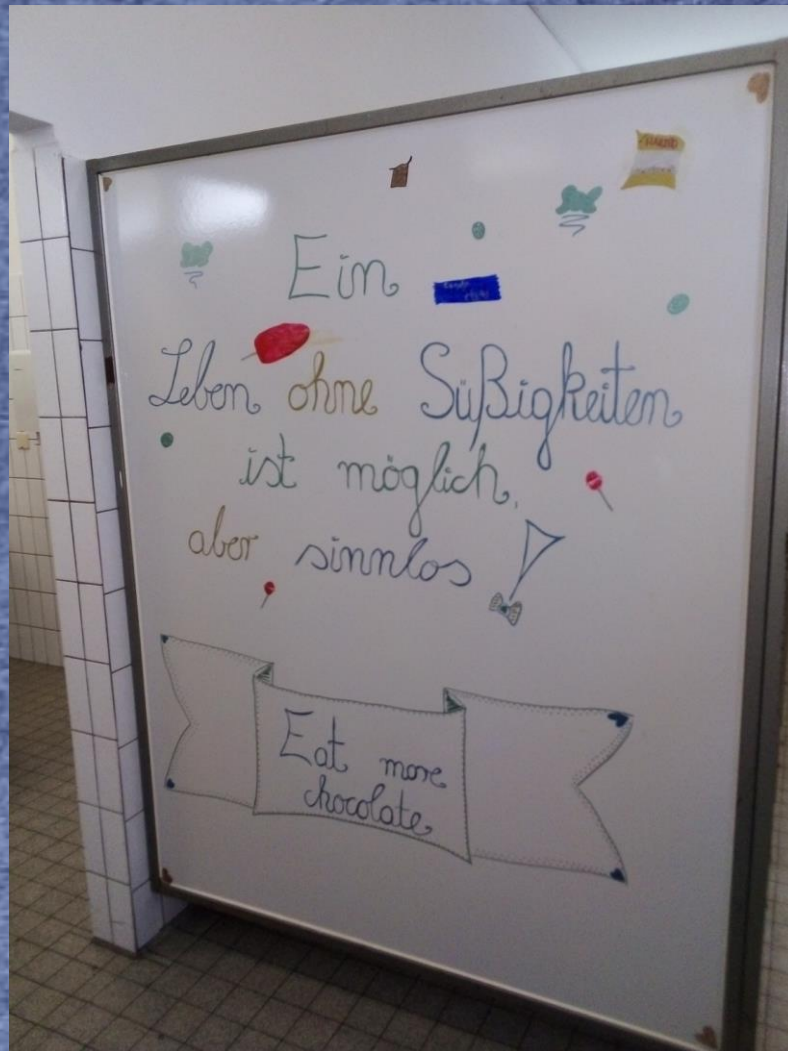 HARIBO
Ein
Leben ohne Süßigkeiten
ist möglich,
aber sinnlos!
Eat more
chocolate